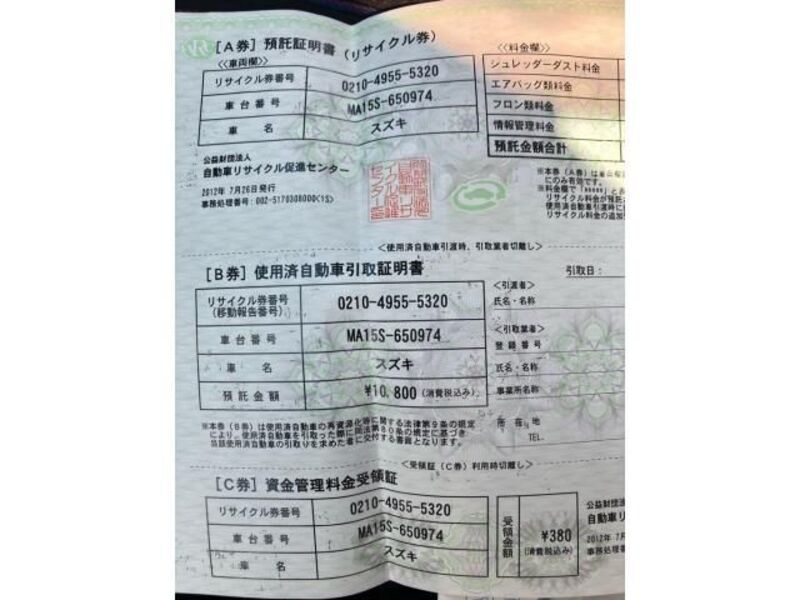 [A券] 預託証明書 (リサイクル券)
≪車両欄≫
リサイクル券番号 0210-4955-5320
車台番号 MA15S-650974
車名 スズキ
≪料金欄≫
シュレッダーダスト料金
エアバッグ類料金
フロン類料金
情報管理料金
預託金額合計
公益財団法人
自動車リサイクル促進センター
2012年 7月26日発行
事務処理番号:002-5170308000<1S>
※本券(A券)は
にのみ有効です。
※料金欄で
リサイクル料金が預託
使用済自動車引渡時に
リサイクル料金の追加
<使用済自動車引渡時、引取業者切離し>
[B券] 使用済自動車引取証明書
引取日:
リサイクル券番号
(移動報告番号) 0210-4955-5320
車台番号 MA15S-650974
車名 スズキ
預託金額 ¥10,800 (消費税込み)
<引渡者>
氏名・名称
<引取業者>
登録番号
氏名・名称
事業所名称
所在地
TEL.
※本券(B券)は使用済自動車の再資源化等に関する法律第9条の規定
により、使用済自動車を引取った際に同法第80条の規定に基づき
当該使用済自動車の引取りを求めた者に交付する書面となります。
<受領証(C券)利用時切離し>
[C券] 資金管理料金受領証
リサイクル券番号 0210-4955-5320
車台番号 MA15S-650974
車名 スズキ
受領金額 ¥380
(消費税込み)
公益財団法
自動車リ
2012年 7月
事務処理番